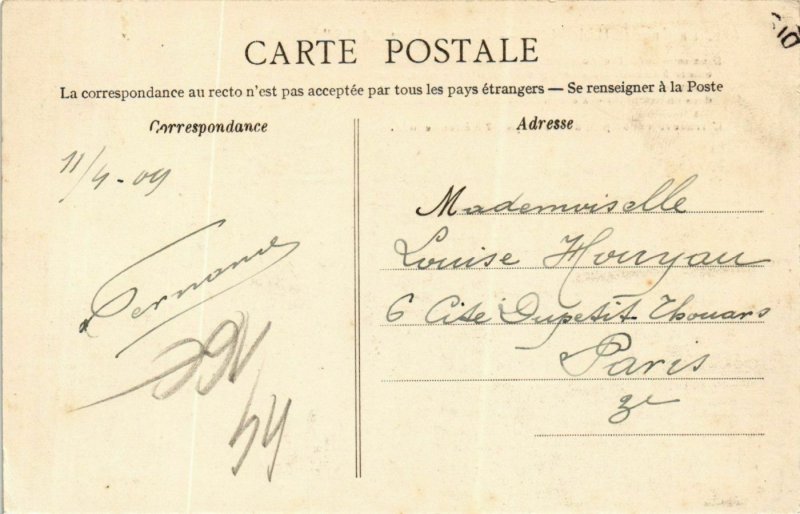 CARTE POSTALE
La correspondance au recto n'est pas acceptée par tous les pays étrangers — Se renseigner à la Poste
Correspondance
11/4-09
Fernande
44
Adresse
Mademoiselle
Louise Houyau
6 Cité Dupetit Thouars
Paris
3e